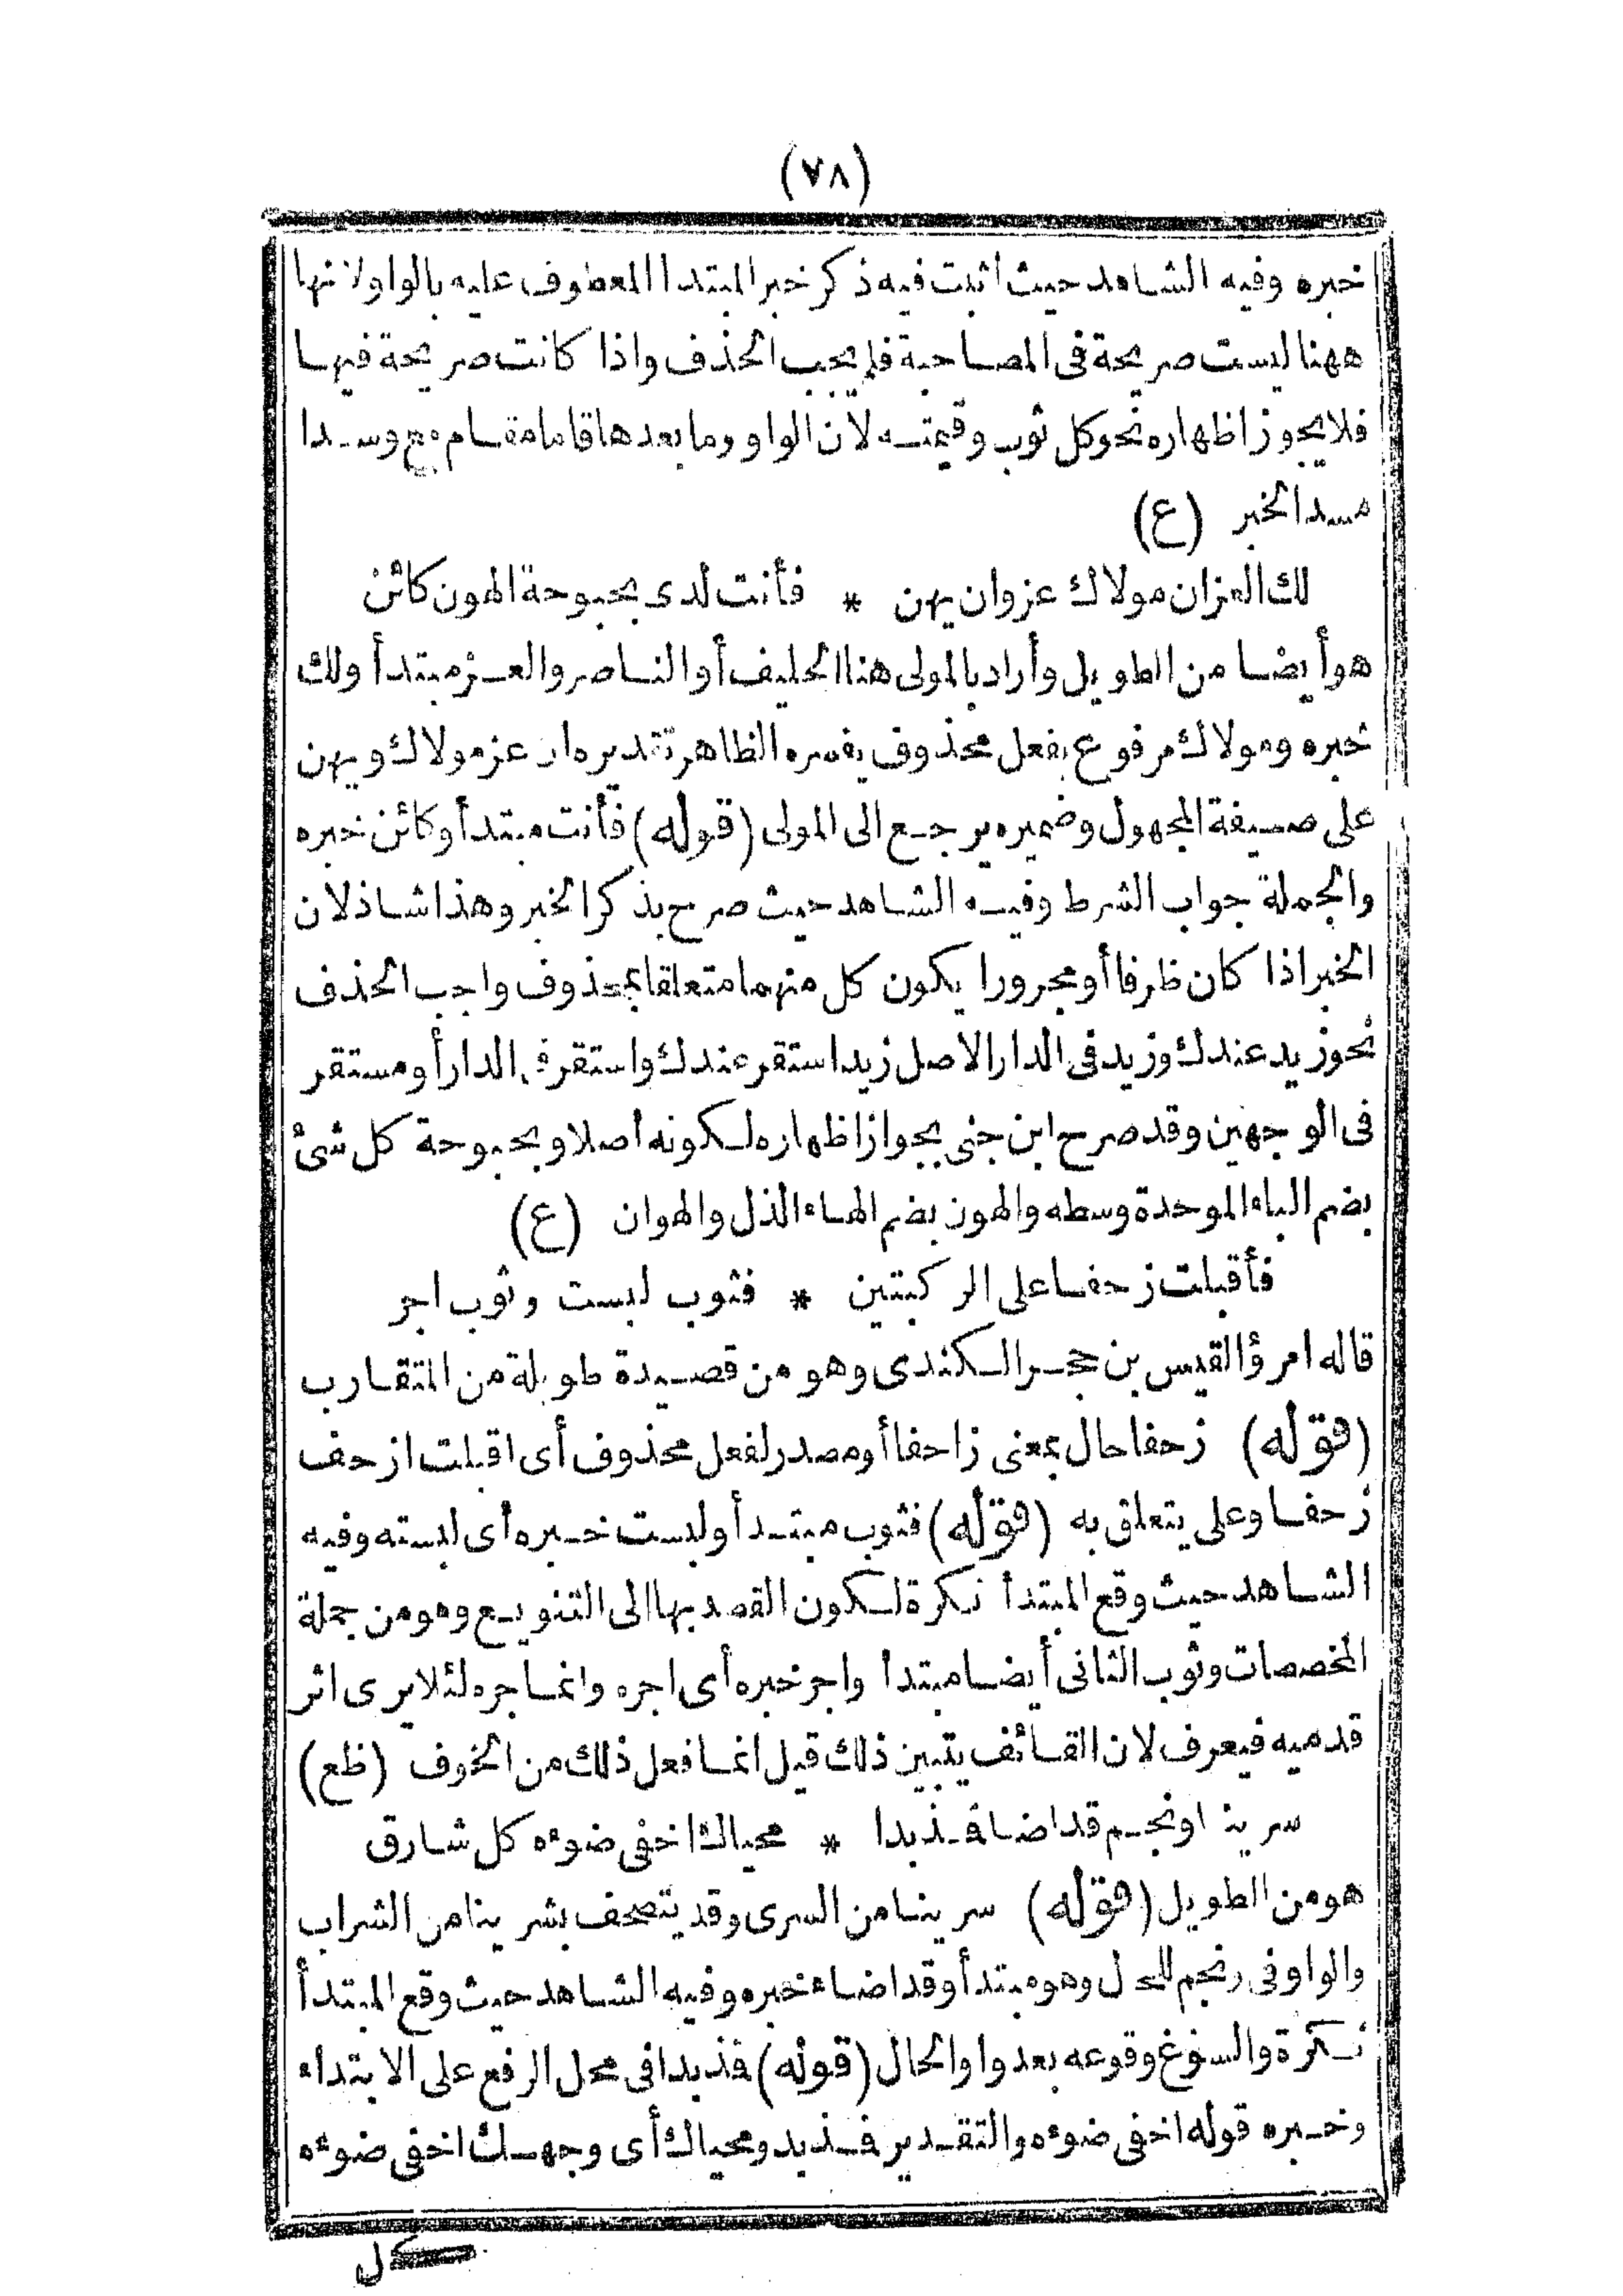 (٧٨)
خبره وفيه الشاهد حيث أثبت فيه ذكر خبر المبتدا المعطوف عليه بالواو لانها
ههنا ليست صريحة فى المصاحبة فلم يجب الحذف واذا كانت صريحة فيها
فلا يجوز اظهاره نحو كل ثوب وقيمته لان الواو وما بعدها قاما مقام مع وسدا
مسد الخبر (ع)
لك العزان مولاك عزوان يهن * فأنت لدى بحبوحة الهون كائن
هو أيضا من الطويل وأراد بالمولى هنا الحليف أو الناصر والعز مبتدأ ولك
خبره ومولاك مرفوع بفعل محذوف يفسره الظاهر تقديره ان عز مولاك ويهن
على صيغة المجهول وضميره يرجع الى المولى (قوله) فأنت مبتدأ وكائن خبره
والجملة جواب الشرط وفيه الشاهد حيث صرح بذكر الخبر وهذا شاذ لان
الخبر اذا كان ظرفا أو مجرورا يكون كل منهما متعلقا بمحذوف واجب الحذف
نحو زيد عندك وزيد فى الدار الاصل زيد استقر عندك واستقر فى الدار أو مستقر
فى الوجهين وقد صرح ابن جنى بجواز اظهاره لكونه أصلا وبحبوحة كل شئ
بضم الباء الموحدة وسطه والهون بضم الهاء الذل والهوان (ع)
فأقبلت زحفا على الركبتين * فثوب لبست وثوب اجر
قاله امرؤ القيس بن حجر الكندى وهو من قصيدة طويلة من المتقارب
(قوله) زحفا حال بمعنى زاحفا أو مصدر لفعل محذوف أى اقبلت ازحف
زحفا وعلى يتعلق به (قوله) فثوب مبتدأ ولبست خبره أى لبسته وفيه
الشاهد حيث وقع المبتدأ نكرة لكون القصد بها الى التنويع وهو من جملة
المخصصات وثوب الثانى أيضا مبتدا واجر خبره أى اجره وانما جره لئلا يرى اثر
قدميه فيعرف لان القائف يتبين ذلك قيل انما فعل ذلك من الخوف (ظع)
سرينا ونجم قد اضا فمذ بدا * محياك اخفى ضوءه كل شارق
هو من الطويل (قوله) سرينا من السرى وقد يتصحف بشربنا من الشراب
والواو فى ونجم للحال وهو مبتدأ وقد اضاء خبره وفيه الشاهد حيث وقع المبتدأ
نكرة والمسوغ وقوعه بعد واو الحال (قوله) فمذ بدا فى محل الرفع على الابتداء
وخبره قوله اخفى ضوءه والتقدير فمذ بدو محياك أى وجهك اخفى ضوءه
كل